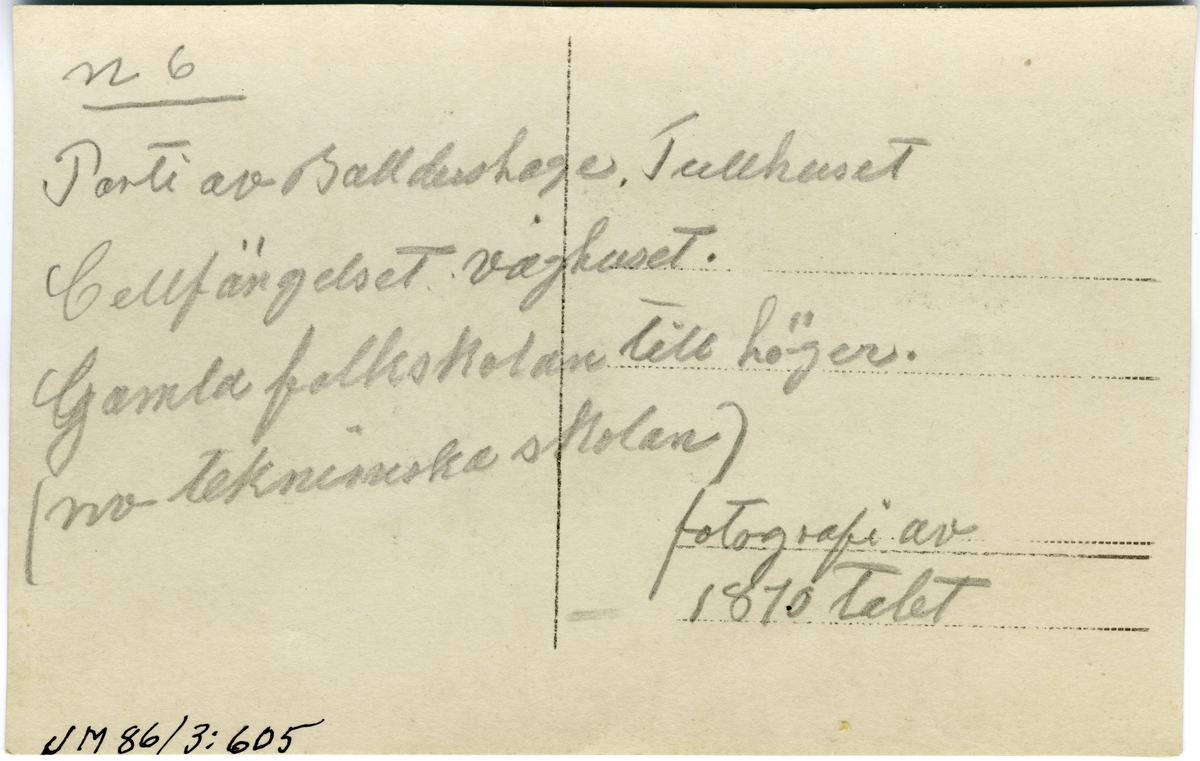 n 6
Parti av Balldershage. Tullhuset
Cellfängelset våghuset.
Gamla folkskolan till höger.
(nv tekniniska skolan)
fotografi av
1870 talet
JM 86/3:605